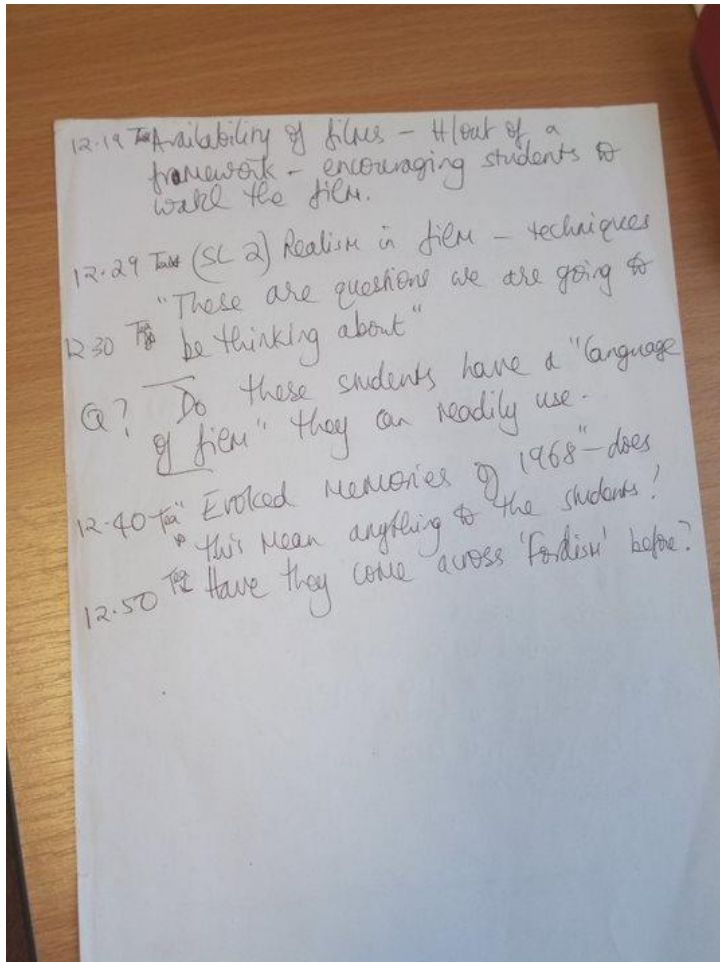 12.19 Availability of films - H/out of a
framework - encouraging students to
the film.
12.29 (SL 2) Realism in film - techniques
"These are questions we are going to
12 30 be thinking about"
Q? Do these students have a "language
of film" they can readily use.
12.40 "Evoked memories of 1968" - does
this mean anything to the students!
12.50 Have they come across 'Fordism' before?